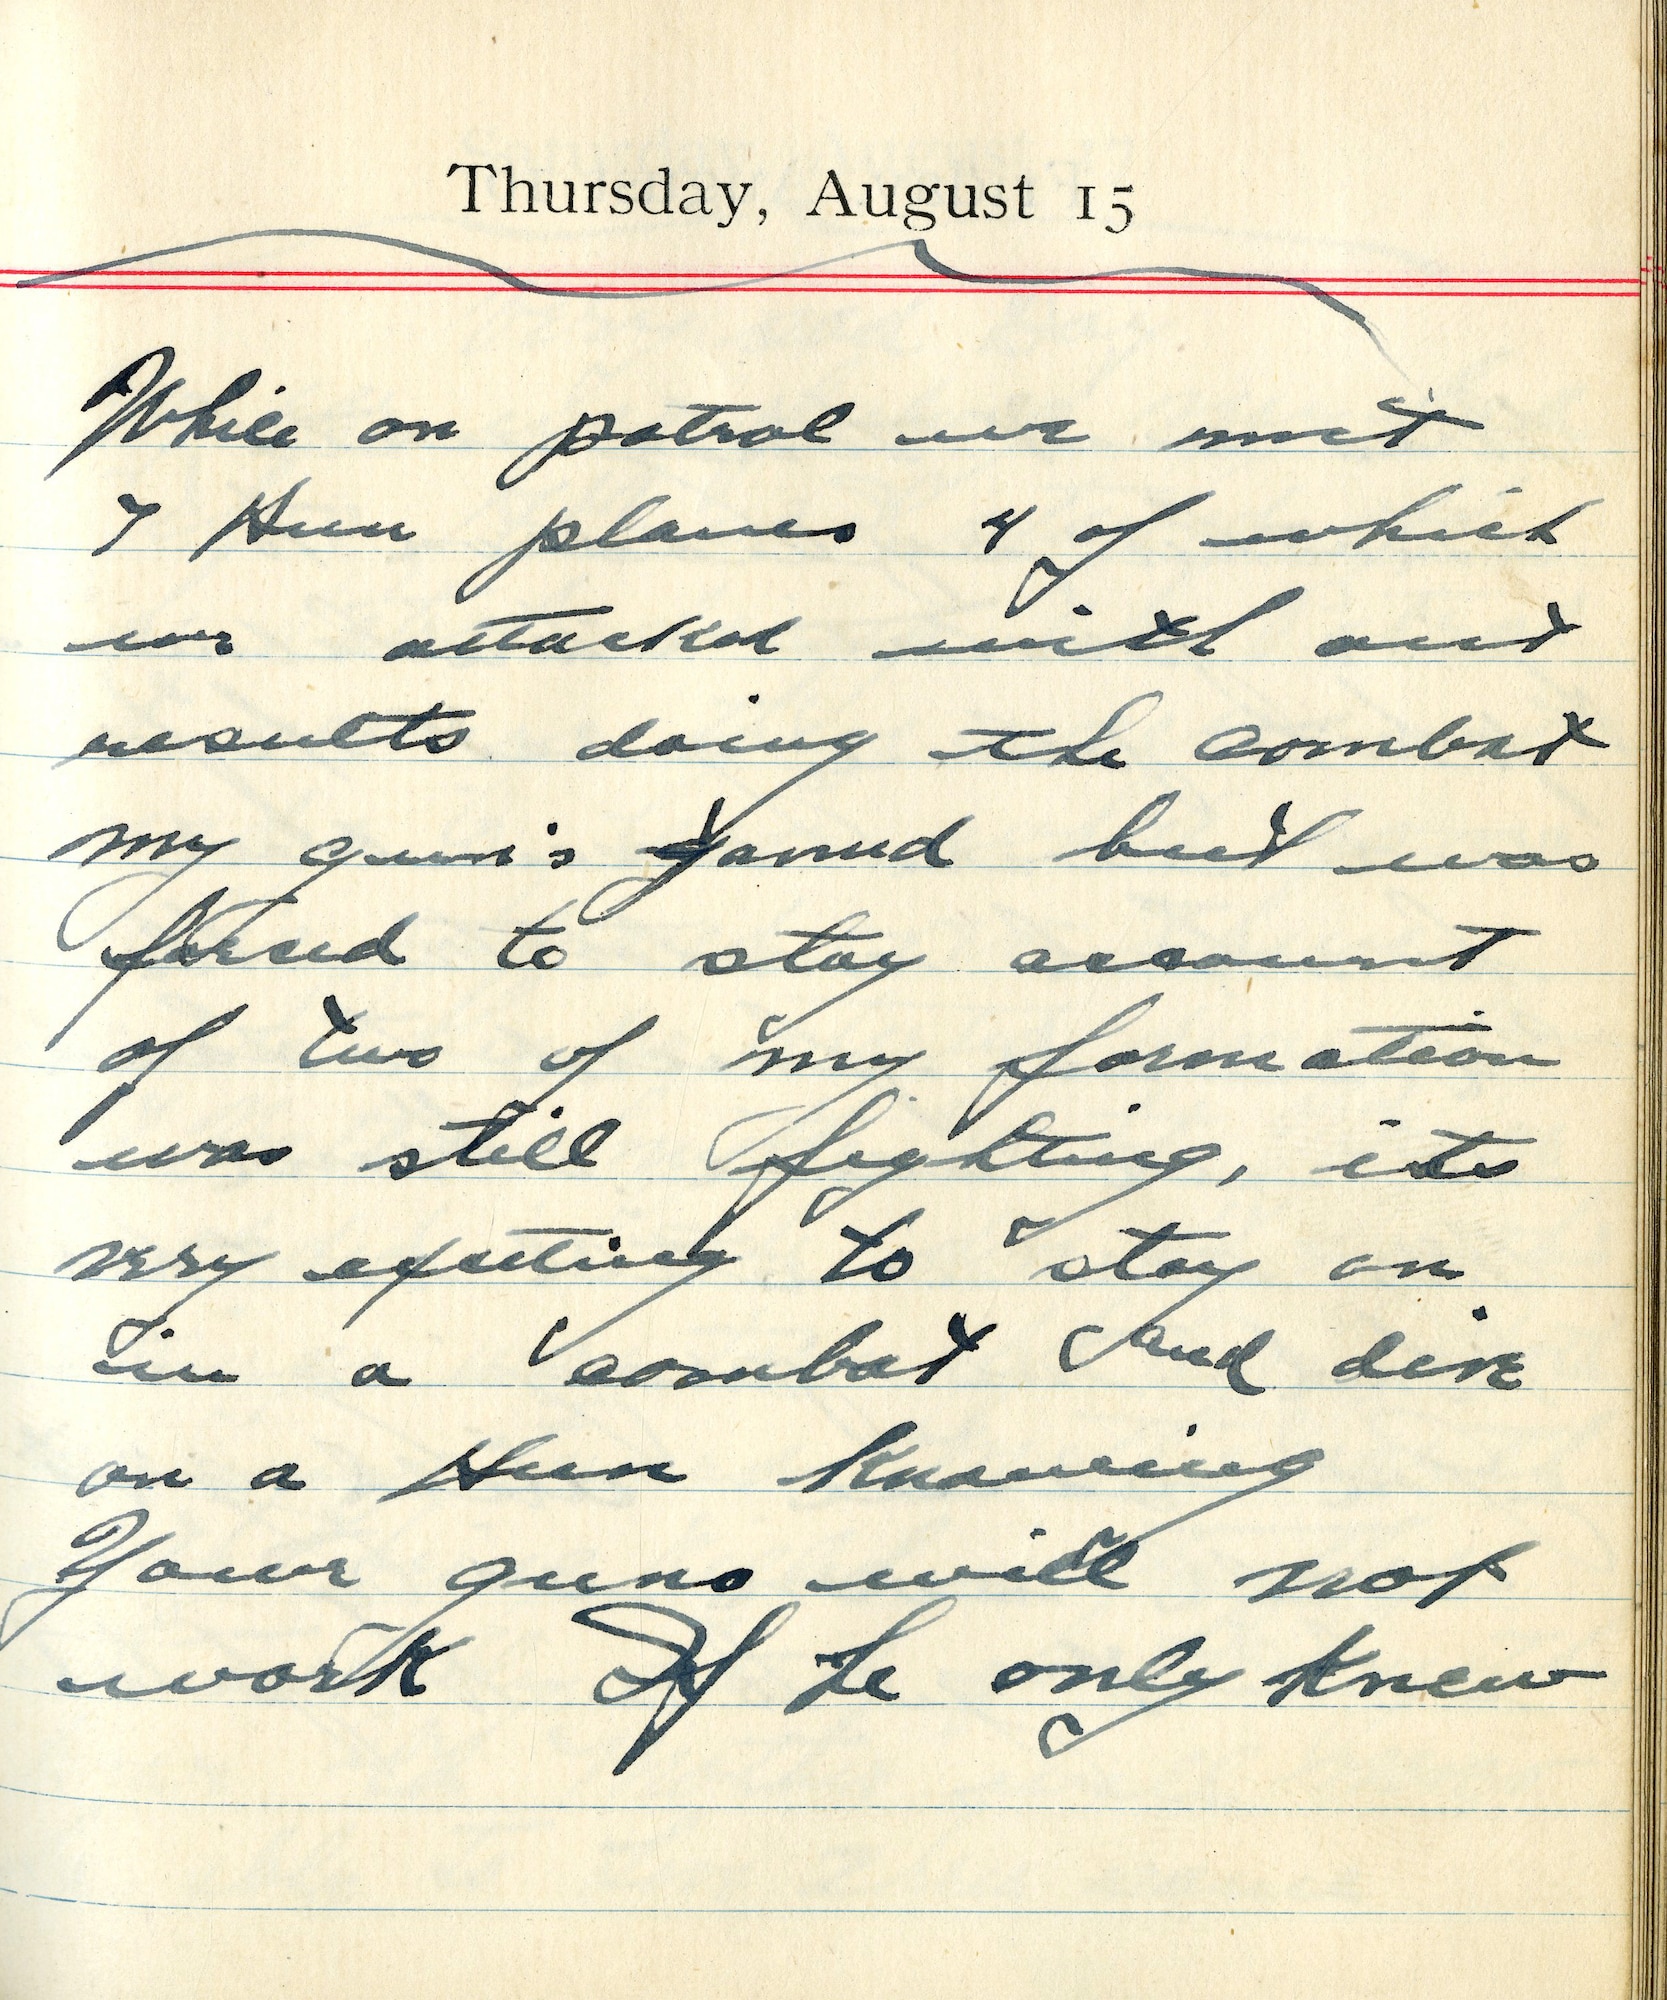 Thursday, August 15
While on patrol we met
7 Hun planes 4 of which
we attacked with out
results doing the combat
my gun's jamed but was
forced to stay account
of two of my formation
was still fighting, its
very exciting to stay on
in a combat and dive
on a Hun knowing
Your guns will not
work If he only knew